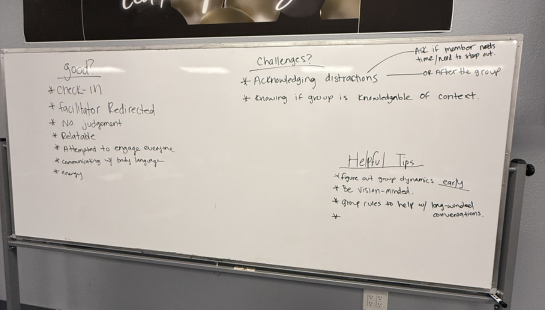 good?
* Check-in
* Facilitator Redirected
* No judgement
* Relatable
* Attempted to engage everyone
* communicating w/ body language
* energy
Challenges?
* Acknowledging distractions
Ask if member needs
time/need to step out.
or After the group
* Knowing if group is knowledgable of context
Helpful Tips
* figure out group dynamics early
* Be vision-minded.
* group rules to help w/ long-winded
conversations.
*